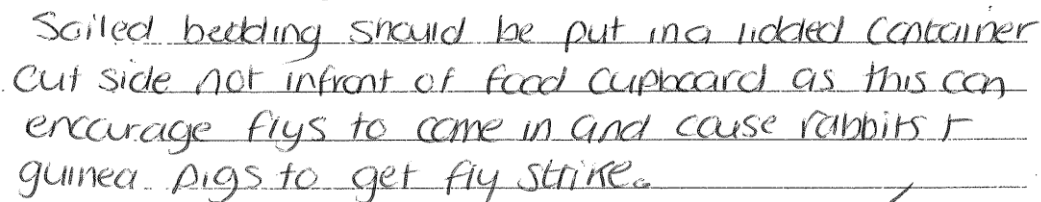 Soiled bedding should be put in a lidded container
out side not infront of food cupboard as this can
encourage flys to come in and cause rabbits +
guinea pigs to get fly strike.